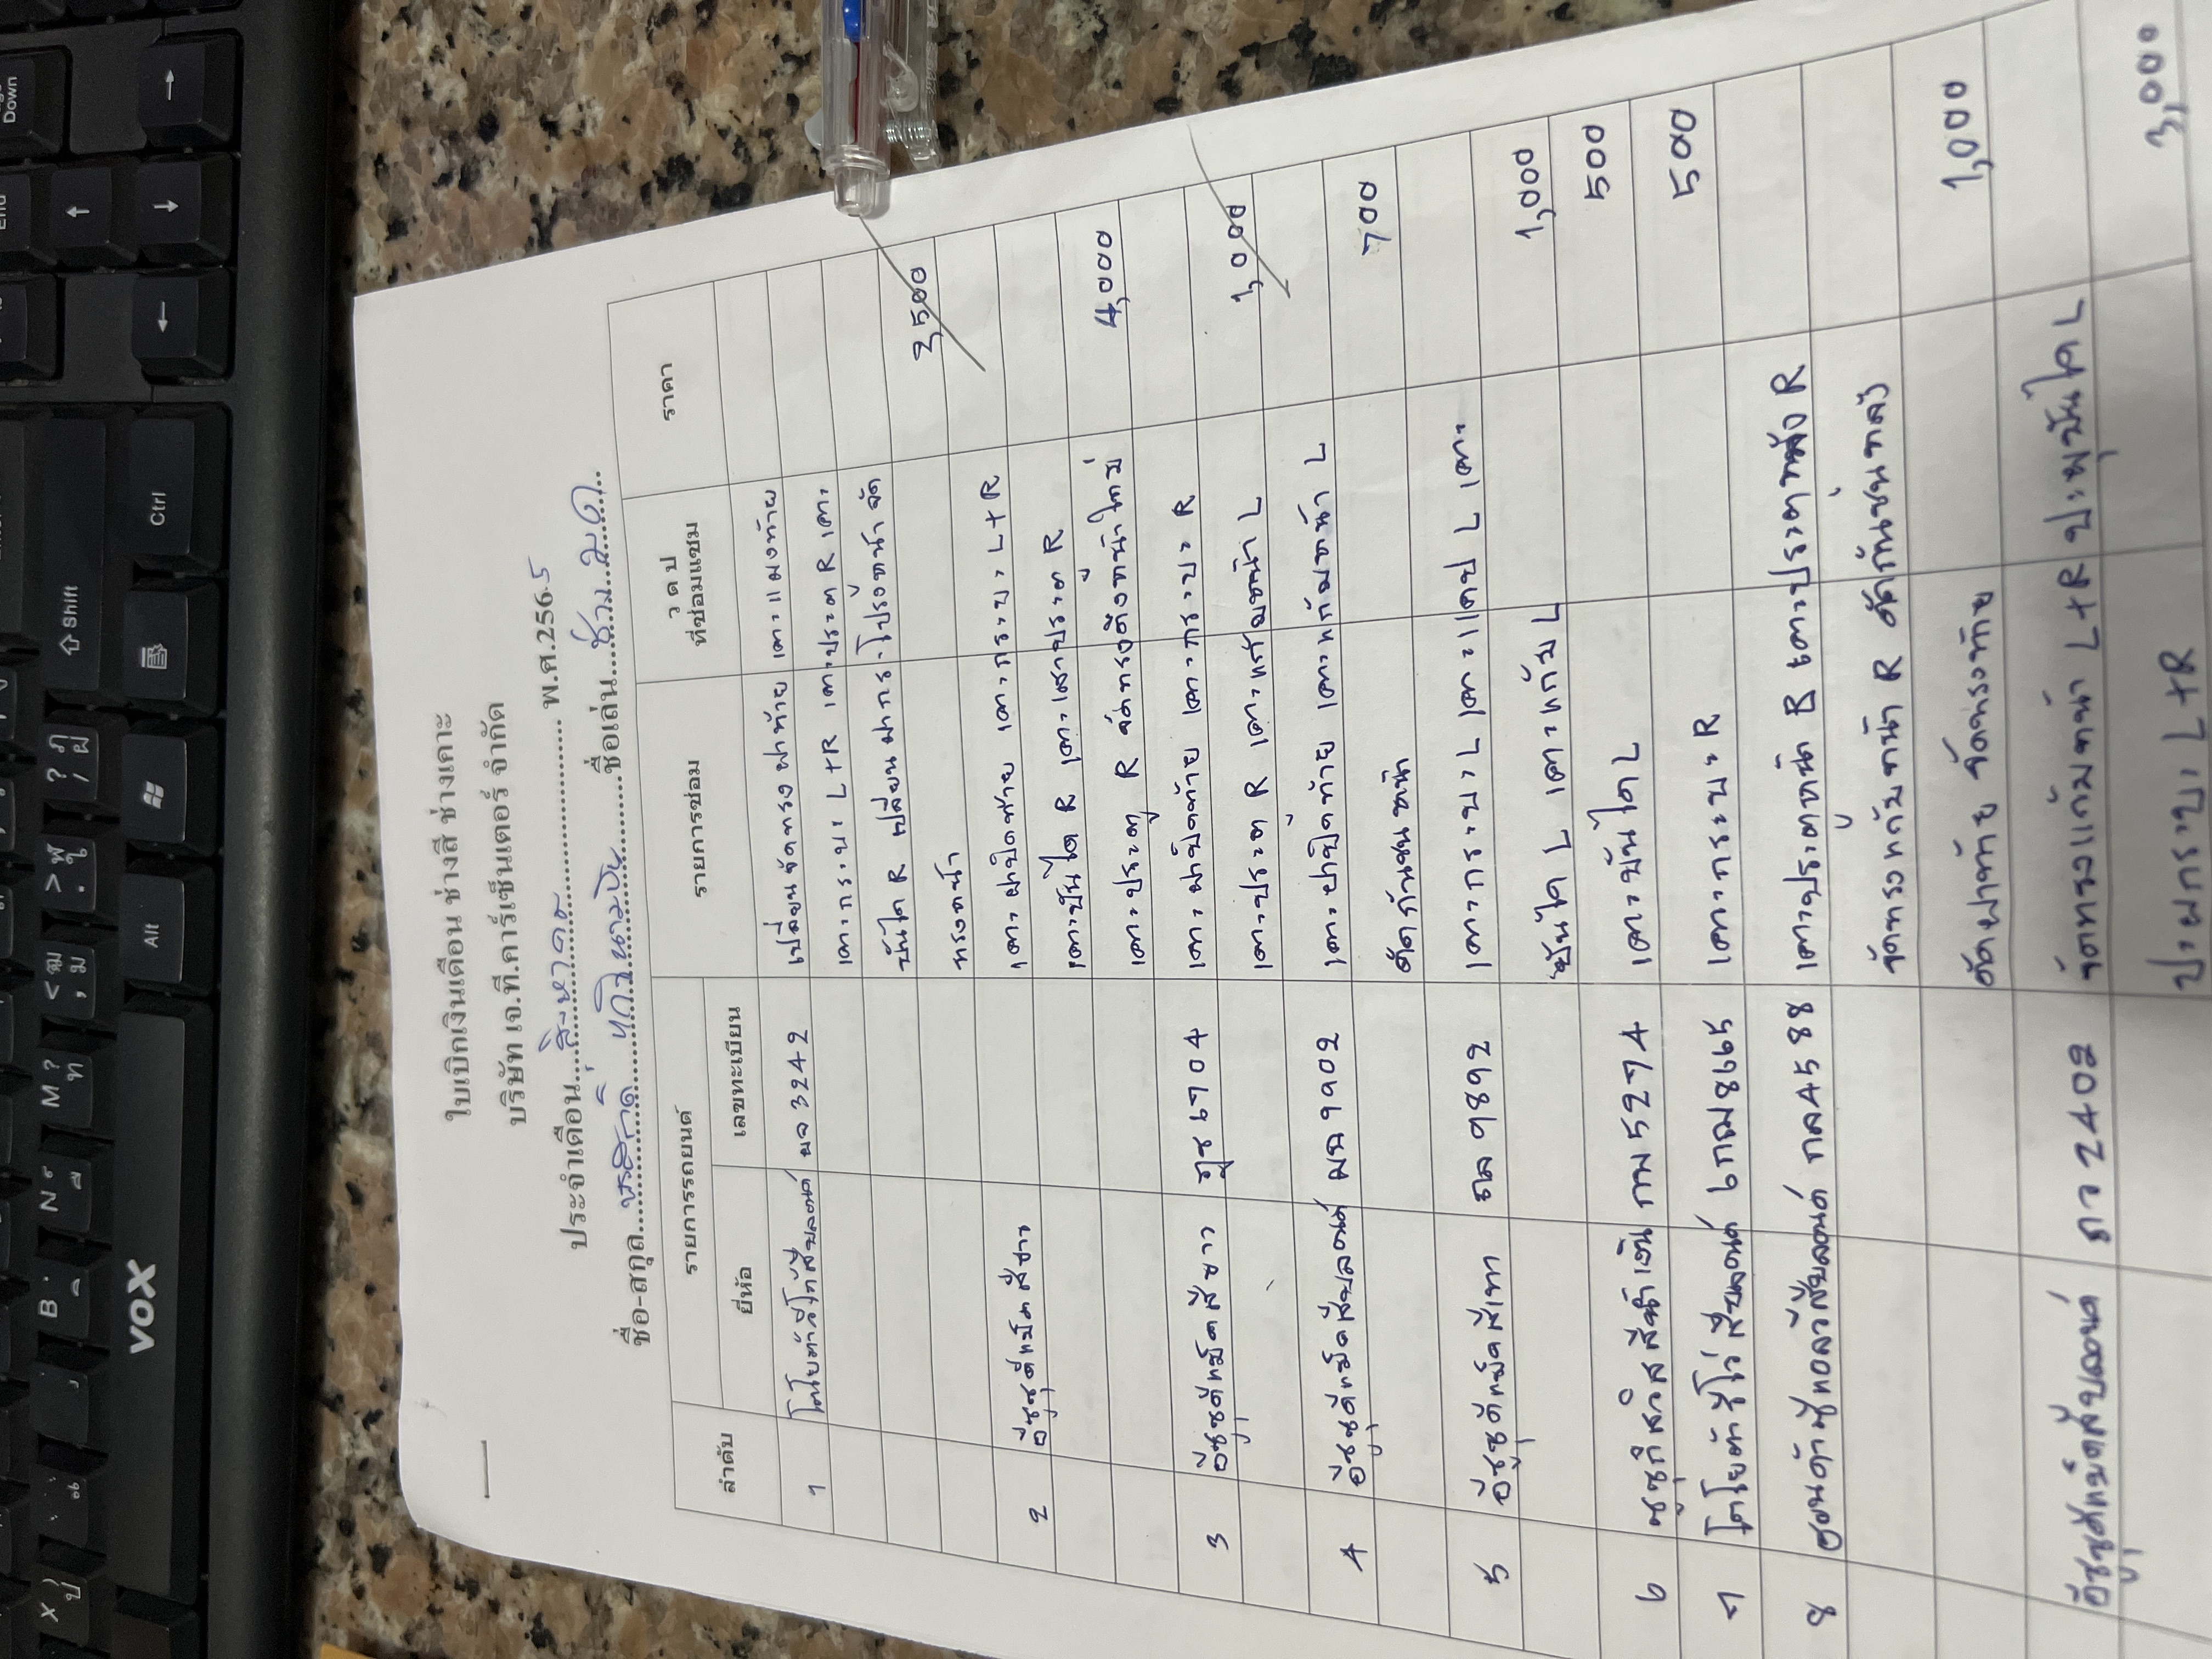 ใบเบิกเงินเดือน ช่างสี ช่างเคาะ
บริษัท เจ.ที.คาร์เซ็นเตอร์ จำกัด
ประจำเดือน....สิงหาคม.... พ.ศ.256.5
ชื่อ-สกุล.... ....ชื่อเล่น....ช่างมด....
ลำดับ รายการรถยนต์ รายการซ่อม ว ด ป ที่ซ่อมแซม ราคา
ยี่ห้อ เลขทะเบียน
1 โตโยต้าวีโก้สีบลอนด์ ผจ 3242 เปลี่ยนจัดทรงฝาท้าย เคาะแมงท้าย
เคาะกระบะ L+R เคาะประตู R เคาะ
บันได R เปลี่ยนฝากระโปรงหน้า จัด
ทรงหน้า 3,500
2 อีซูซุดีแม็คสีขาว เคาะฝาปิดท้าย เคาะกระบะ L+R
เคาะบันได R เคาะเสาประตู R
เคาะประตู R จัดทรงคิ้วหน้าใหม่ 4,000
3 อีซูซุดีแม็คสีขาว ฎช 6704 เคาะฝาปิดท้าย เคาะกระบะ R
เคาะประตู R เคาะแก้มหน้า L 1,000
4 อีซูซุดีแม็คสีบลอนด์ มฉ 9902 เคาะฝาปิดท้าย เคาะแก้มหน้า L
ดัดกันชนหน้า 700
5 อีซูซุดีแม็คสีเทา ถล 9892 เคาะกระบะ L เคาะแคป L เคาะ
บันได L เคาะแก้ม L 1,000
6 ซูซูกิสวิสสีน้ำเงิน กม 5274 เคาะบันได L 500
7 โตโยต้ารีโว่สีบลอนด์ 6กฒ 8665 เคาะกระบะ R 500
8 ฮอนด้าซีแอลวีสีบลอนด์ กล 4588 เคาะประตูหน้า R เคาะประตูหลัง R
จัดทรงแก้มหน้า R ดัดกันชนหลัง
ดัดฝาท้าย จัดทรงท้าย 1,000
อีซูซุดีแม็คสีบลอนด์ ภว 2402 จัดทรงแก้มหน้า L+R ปะผุบันได L
ปะผุกระบะ L+R 3,000
Down
End
Shift
Ctrl
Alt
VOX
X ป
B
N
M ? ท
< ฒ , ม
> ฬ . ใ
? ฦ / ฝ